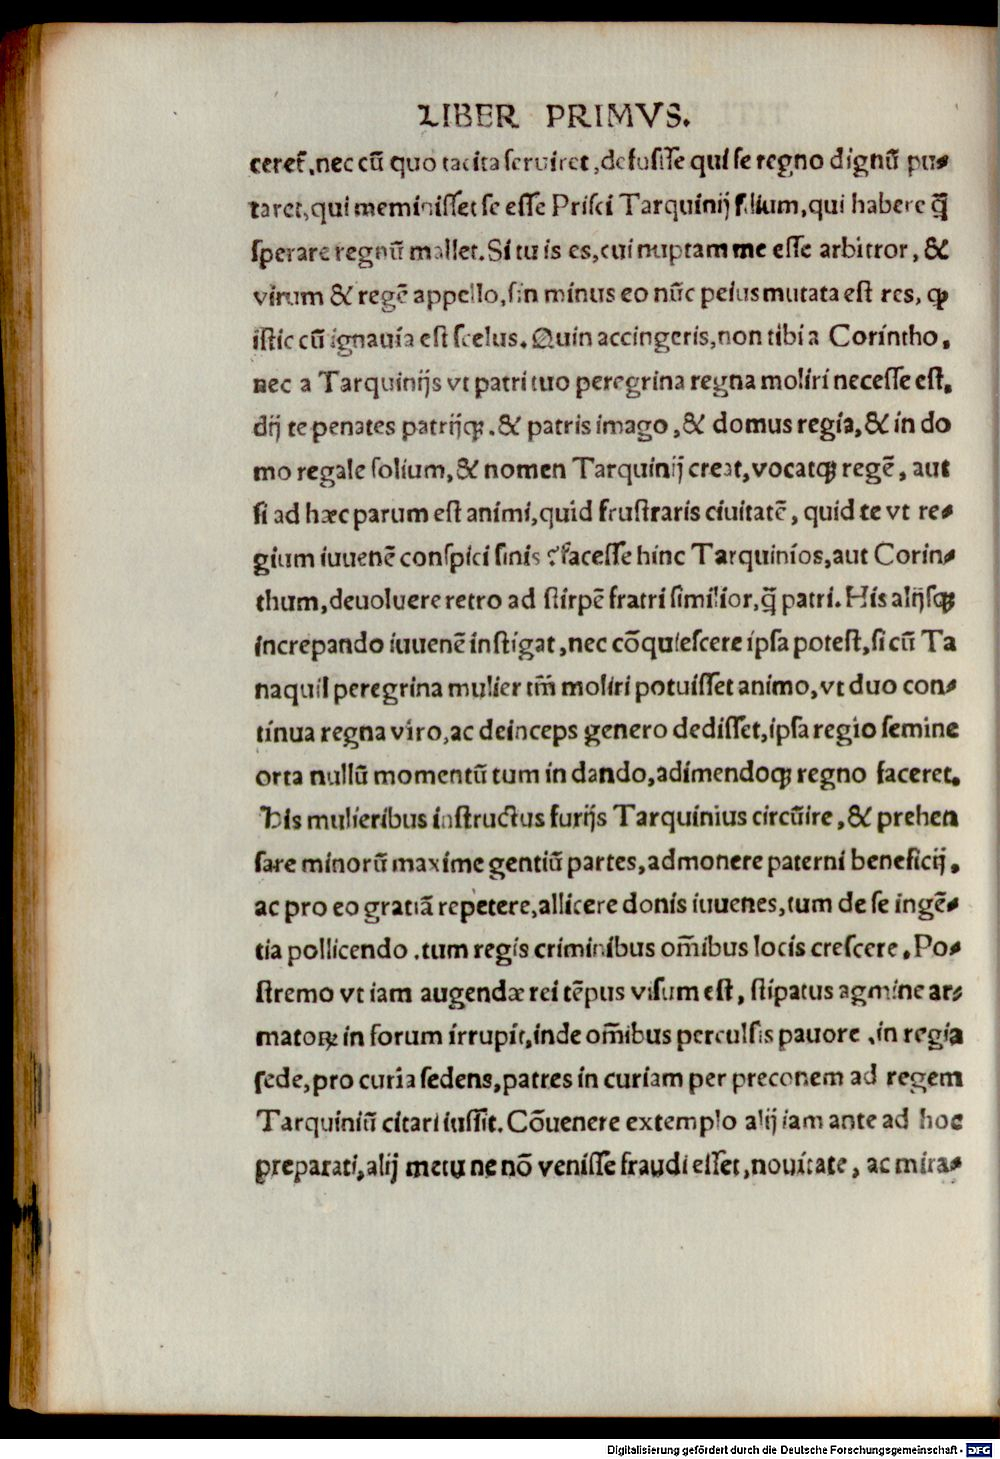 LIBER PRIMVS.
ceret̃.nec cũ quo tacita seruiret,defuisse qui se regno dignũ pu-
taret,qui meminisset se esse Prisci Tarquinij filium,qui habere q̃
sperare regnũ mallet.Si tu is es,cui nuptam me esse arbitror, &
virum & regẽ appello,sin minus eo nũc peius mutata est res, ꝙ
istic cũ ignauia est scelus. Quin accingeris,non tibi a Corintho.
nec a Tarquinijs vt patri tuo peregrina regna moliri necesse est.
dij te penates patrijqꝫ.& patris imago,& domus regia,& in do
mo regale solium,& nomen Tarquinij creat,vocatqꝫ regẽ, aut
si ad hæc parum est animi,quid frustraris ciuitatẽ, quid te vt re-
gium iuuenẽ conspici sinis ? facesse hinc Tarquinios,aut Corin-
thum,deuoluere retro ad stirpẽ fratri similior,q̃ patri.His alijsqꝫ
increpando iuuenẽ instigat,nec cõquiescere ipsa potest,si cũ Ta
naquil peregrina mulier tm̃ moliri potuisset animo,vt duo con-
tinua regna viro,ac deinceps genero dedisset,ipsa regio semine
orta nullũ momentũ tum in dando,adimendoqꝫ regno faceret.
His mulieribus instructus furijs Tarquinius circũire,& prehen
sare minorũ maxime gentiũ partes,admonere paterni beneficij.
ac pro eo gratiã repetere,allicere donis iuuenes,tum de se ingẽ-
tia pollicendo .tum regis criminibus om̃ibus locis crescere.Po-
stremo vt iam augendæ rei tẽpus visum est, stipatus agmine ar-
matoꝝ in forum irrupit,inde om̃ibus perculsis pauore .in regia
sede,pro curia sedens,patres in curiam per preconem ad regem
Tarquiniũ citari iussit.Cõuenere extemplo alij iam ante ad hoc
preparati,alij metu ne nõ venisse fraudi esset,nouitate, ac mira-
Digitalisierung gefördert durch die Deutsche Forschungsgemeinschaft - DFG